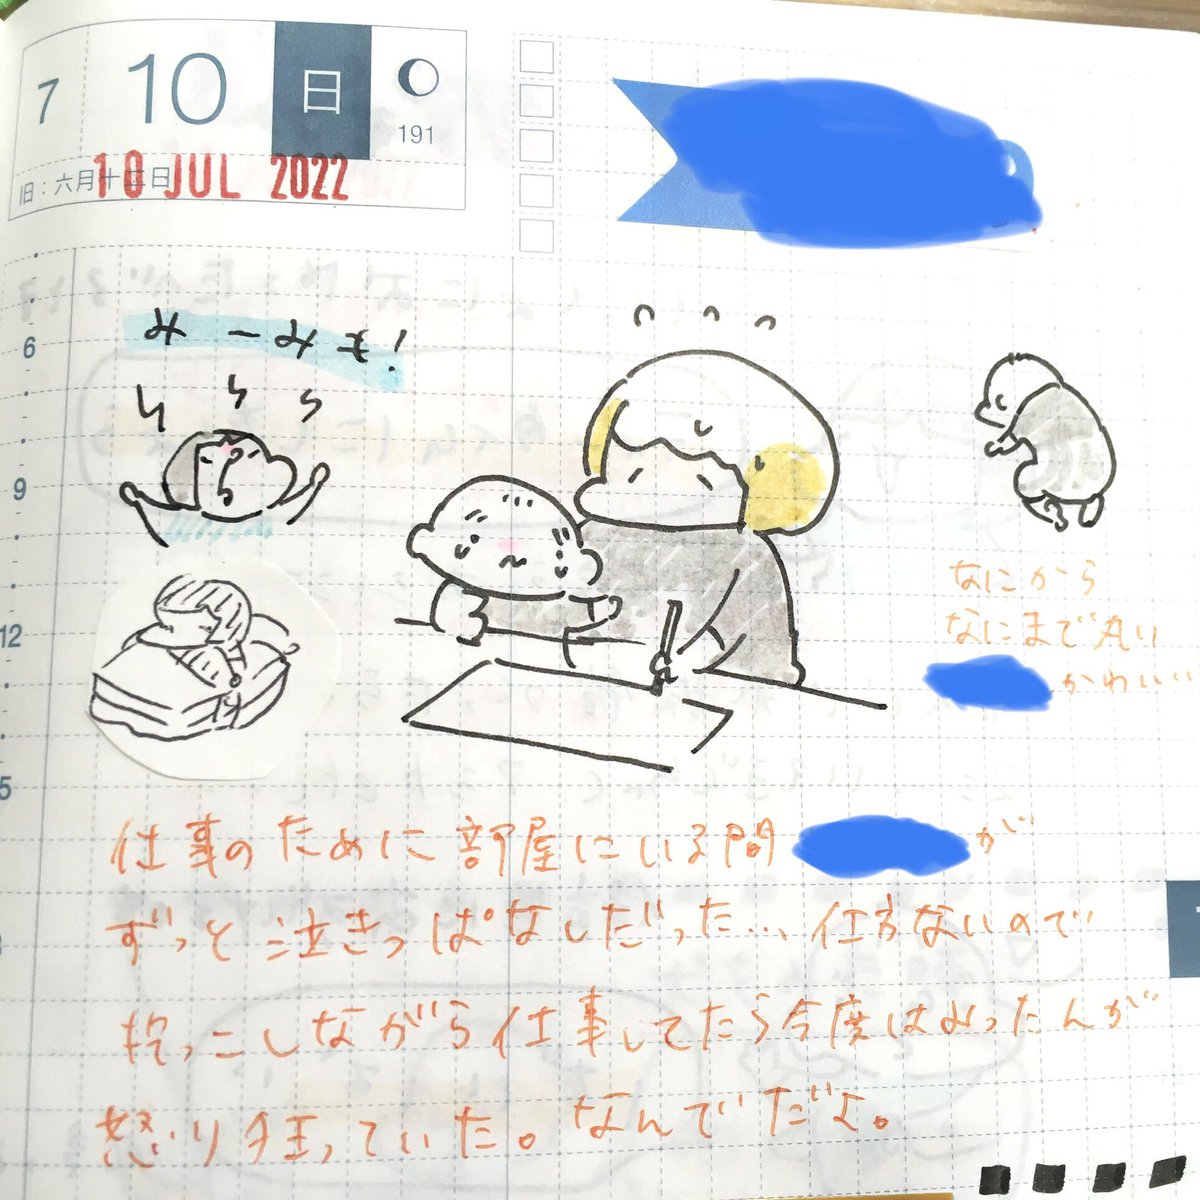 7 10 日
191
旧：六月十二日
10 JUL 2022
みーみも！
6
9
12
なにから
なにまで丸い
かわいい
仕事のために部屋にいる間 が
ずっと泣きっぱなしだった… 仕方ないので
抱っこしながら仕事してたら今度はみったんが
怒り狂っていた。なんでだよ。